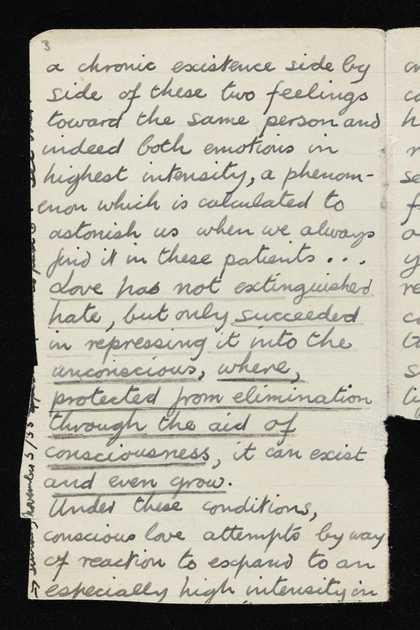 3
a chronic existence side by
side of these two feelings
toward the same person and
indeed both emotions in
highest intensity, a phenom-
enon which is calculated to
astonish us when we always
find it in these patients...
Love has not extinguished
hate, but only succeeded
in repressing it into the
unconscious, where,
protected from elimination
through the aid of
consciousness, it can exist
and even grow.
Under these conditions,
conscious love attempts by way
of reaction to expand to an
especially high intensity in
November 5/35